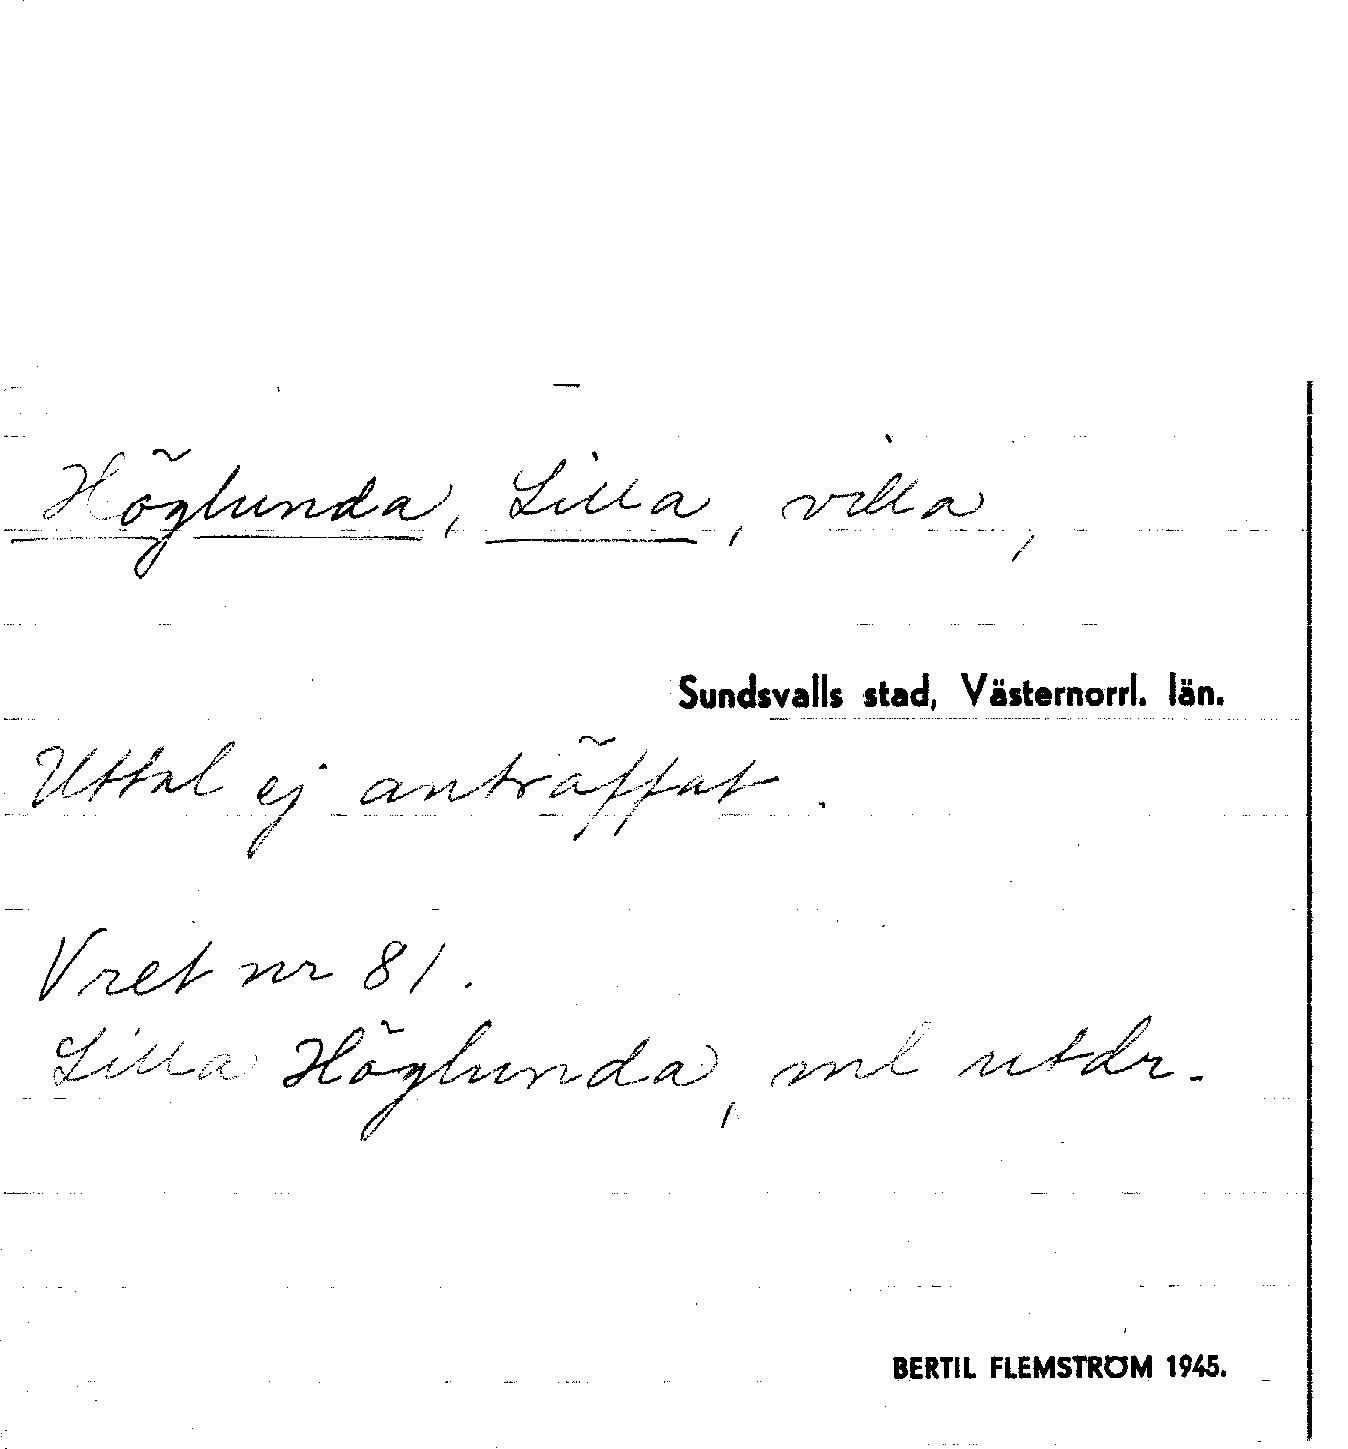 Höglunda, Lilla, villa,
Sundsvalls stad, Västernorrl. län.
Uttal ej anträffat.
Vret nr 81.
Lilla Höglunda, ml utdr.
BERTIL FLEMSTRÖM 1945.